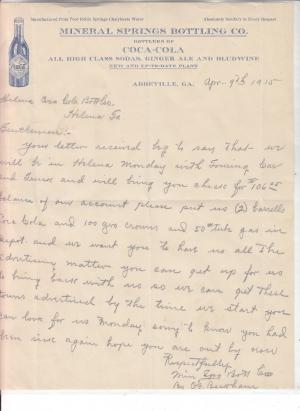 Manufactured From Poor Robin Springs Chalybeate Water
Absolutely Sanitary in Every Respect
MINERAL SPRINGS BOTTLING CO.
BOTTLERS OF
COCA-COLA
ALL HIGH CLASS SODAS, GINGER ALE AND BLUDWINE
NEW AND UP-TO-DATE PLANT
ABBEVILLE, GA.
Apr. 9th 1915
Helena Coca Cola Bottlers.
Helena Ga
Gentlemen:-
Your letter received beg to say that we
will be in Helena Monday with Touring Car
and Truck and will bring you check for $106.25
balance of our account please put us (2) barrells
Coca Cola and 100 gro crowns and 50# tube gas in
depot and we want you to have us all the
advertising matter you can get up for us
to bring back with us so we can get these
towns advertised by the time we start you
can look for us Monday sorry to know you had
been sick again hope you are out by now
Respectfully
Min Spgs Bott Co